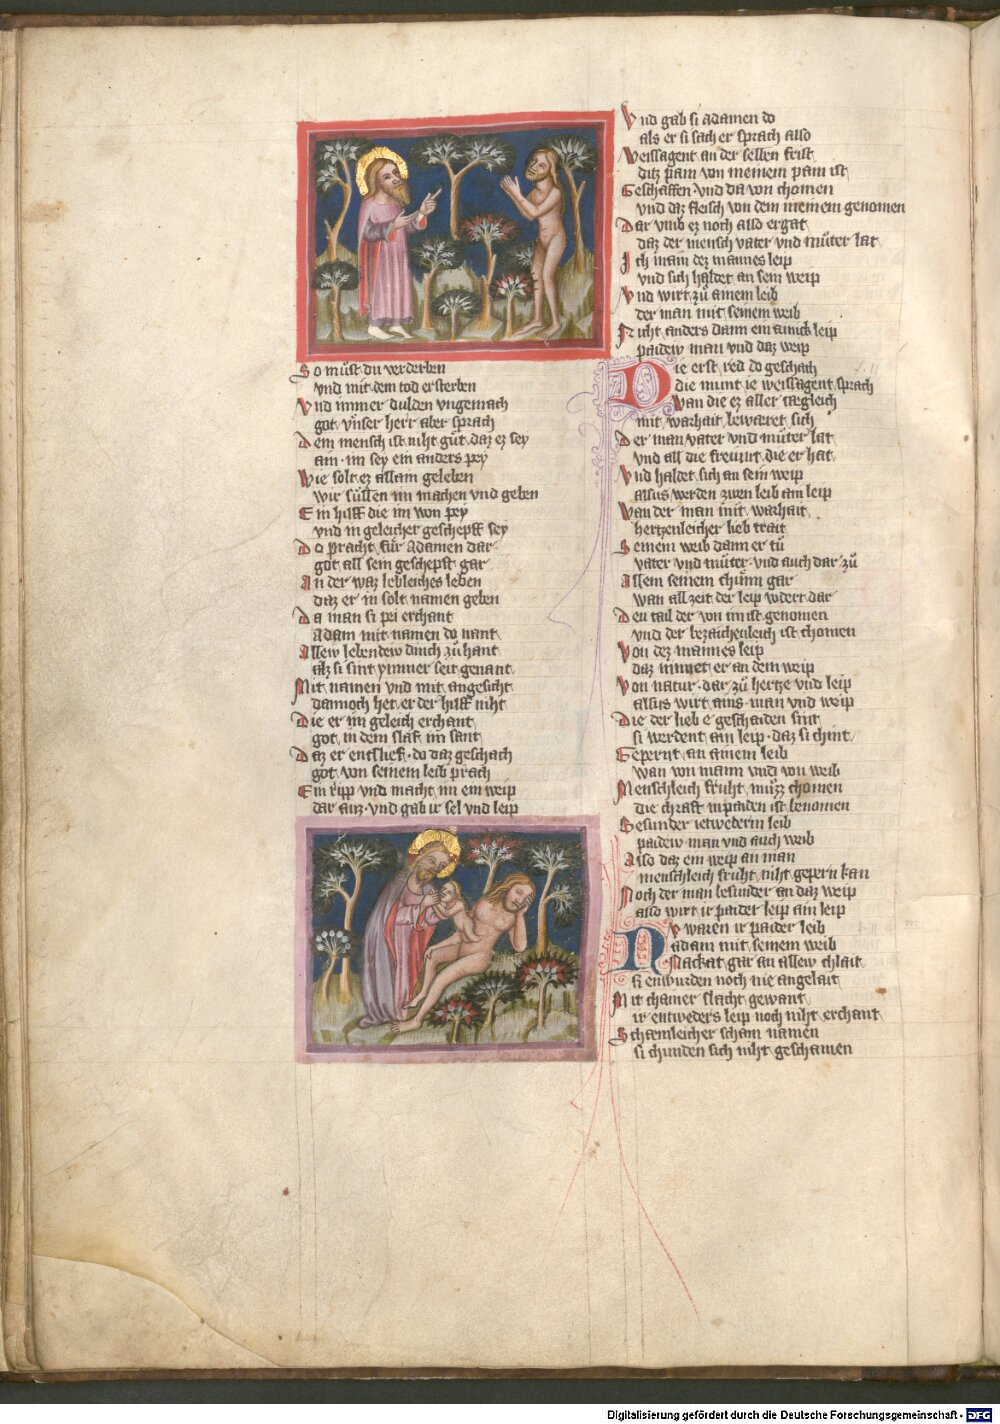 So müst du verderben
und mit dem tod ersterben
Vnd immer dulden vngemach
got vnser herr aber sprach
Dem mensch ist niht güt daz ez sey
ain im sey ein anders pey
Wie solt ez allain geleben
wir süllen im machen vnd geben
Ein hilff die im won pey
vnd in geleicher geschepff sey
Do pracht für Adamen dar
got all sein geschepft gar
An der waz lebleiches leben
daz er in solt namen geben
Da man si pei erchant
Adam mit namen do nant
Allew lebendew dinch zu hant
alz si sint ymmer seit genant
Mit namen vnd mit angesicht
dannoch het er der hilff niht
Die er im geleich erchant
got in dem slaf im sant
Daz er entslief do daz geschach
got von seinem leib prach
Ein ripp vnd macht im ein weip
dar auz vnd gab ir sel vnd leip
Vnd gab si adamen do
als er si sach er sprach also
Weissagent an der selben frist
ditz pain von meinem pain ist
Geschaffen vnd da von chomen
vnd daz fleisch von dem meinem genomen
Dar vmb ez noch also ergat
daz der mensch vater vnd müter lat
Ich main dez mannes leip
vnd sich haldet an sein weip
Vnd wirt zu ainem leib
der man mit seinem weib
Nicht anders dann ein ainick leip
paidew man vnd daz weip
Die erst red do geschach
die munt ie weissagent sprach
Wan die ez aller tægleich
mit warhait bewæret sich
Der man vater vnd müter lat
vnd all die freunt die er hat
Vnd haldet sich an sein weip
alsus werden zwen leib ain leip
Wan der man mit warhait
hertzenleicher lieb trait
Seinem weib dann er tü
vater vnd müter vnd auch dar zü
Allem seinem chünn gar
wan all zeit der leip vodert dar
Den tail der von im ist genomen
vnd der bezaichenleich ist chomen
Von dez mannes leip
daz minnet er an dem weip
Von natur dar zü hertze vnd leip
alsus wirt ains man vnd weip
Die der lieb e geschaiden sint
si werdent ain leip daz si chint
Gepernt an ainem leib
wan von mann vnd von weib
Menschleich fruht müzz chomen
die chraft in paiden ist benomen
Besunder ietwederm leib
paidew man vnd auch weib
Also daz ein weip an man
menschleich fruht niht gepern kan
Noch der man besunder an daz weip
also wirt ir paider leip ain leip
Nv waren ir paider leib
adam mit seinem weib
Nackat gar an allew chlait
si enwurden noch nie angelait
Mit chainer slacht gewant
ir entweders leip noch niht erchant
Schæmleicher scham namen
si chunden sich niht geschamen
Digitalisierung gefördert durch die Deutsche Forschungsgemeinschaft - DFG